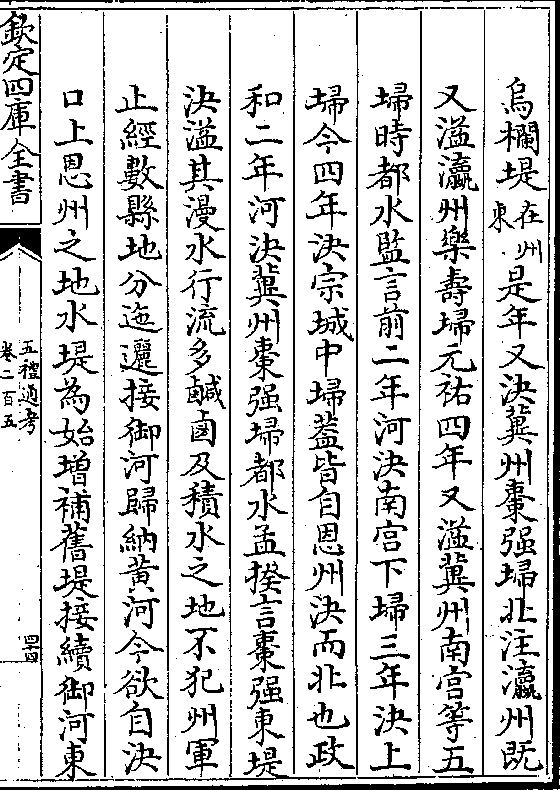 烏欄堤在州東是年又決冀州棗强埽北注瀛州既
又溢瀛州樂壽埽元祐四年又溢冀州南宮等五
埽時都水監言前二年河決南宮下埽三年決上
埽今四年決宗城中埽葢皆自恩州決而北也政
和二年河決冀州棗强埽都水孟揆言棗强東堤
決溢其漫水行流多鹹鹵及積水之地不犯州軍
止經數縣地分迤邐接御河歸納黄河今欲自決
口上恩州之地水堤為始増補舊堤接續御河東
欽定四庫全書
五禮通考
卷二百五
四十四